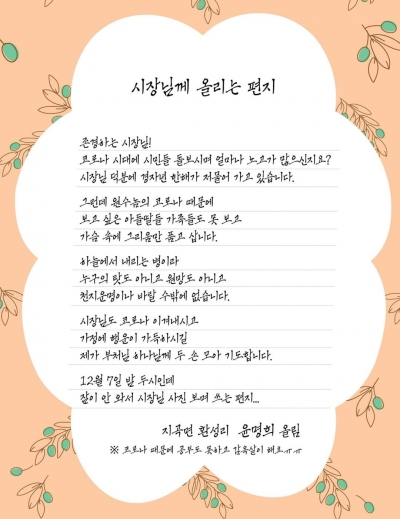 시장님께 올리는 편지
존경하는 시장님!
코로나 시대에 시민들 돌보시며 얼마나 노고가 많으신지요?
시장님 덕분에 경자년 한해가 저물어 가고 있습니다.
그런데 원수놈의 코로나 때문에
보고 싶은 아들딸들 가족들도 못 보고
가슴 속에 그리움만 품고 삽니다.
하늘에서 내리는 병이라
누구의 탓도 아니고 원망도 아니고
천지운명이나 바랄 수밖에 없습니다.
시장님도 코로나 이겨내시고
가정에 행운이 가득하시길
제가 부처님 하나님께 두 손 모아 기도합니다.
12월 7일 밤 두시인데
잠이 안 와서 시장님 사진 보며 쓰는 편지...
지곡면 환성리 윤명희 올림
※ 코로나 때문에 공부도 못하고 감옥살이 해요ㅠㅠ